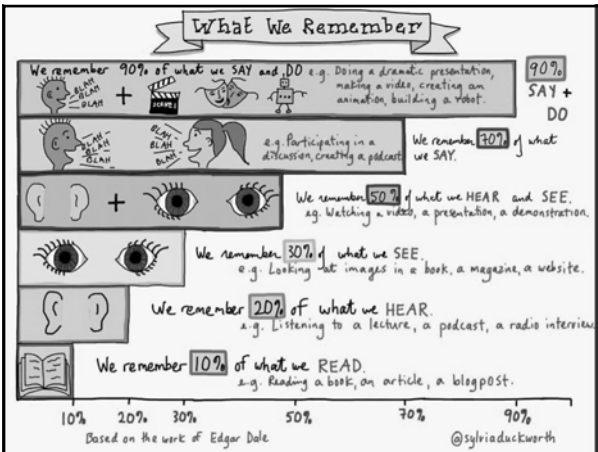 What We Remember
We remember 90% of what we SAY and DO e.g. Doing a dramatic presentation,
making a video, creating an
animation, building a robot.
BLAH
BLAH
BLAH
BLAH
SCENE 1
90%
SAY +
DO
BLAH
BLAH
BLAH
BLAH
BLAH
BLAH
e.g. Participating in a
discussion, creating a podcast
We remember 70% of what
we SAY.
+
We remember 50% of what we HEAR and SEE.
e.g. Watching a video, a presentation, a demonstration.
We remember 30% of what we SEE.
e.g. Looking at images in a book, a magazine, a website.
We remember 20% of what we HEAR.
e.g. Listening to a lecture, a podcast, a radio interview
We remember 10% of what we READ.
e.g. Reading a book, an article, a blogpost.
10% 20% 30% 50% 70% 90%
Based on the work of Edgar Dale @sylviaduckworth